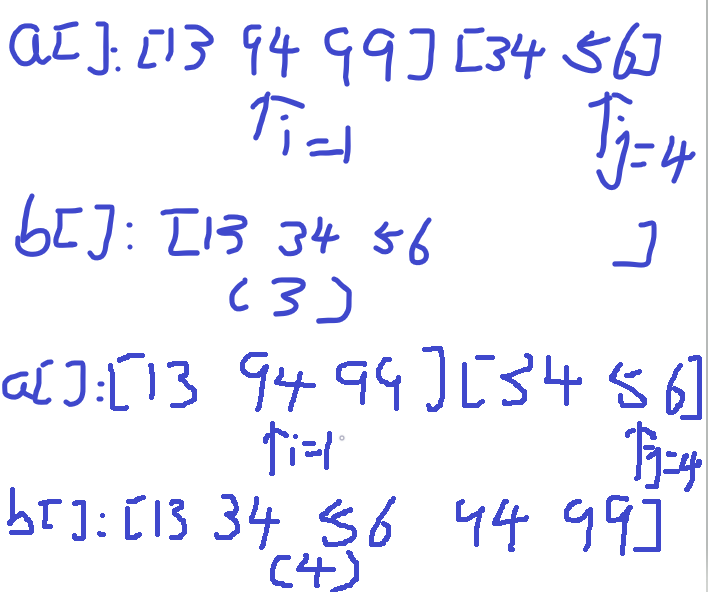 a[]: [13 94 99] [34 56]
↑i=1 ↑j=4
b[]: [13 34 56 ]
(3)
a[]: [13 94 99] [34 56]
↑i=1 ↑j=4
b[]: [13 34 56 94 99]
(4)